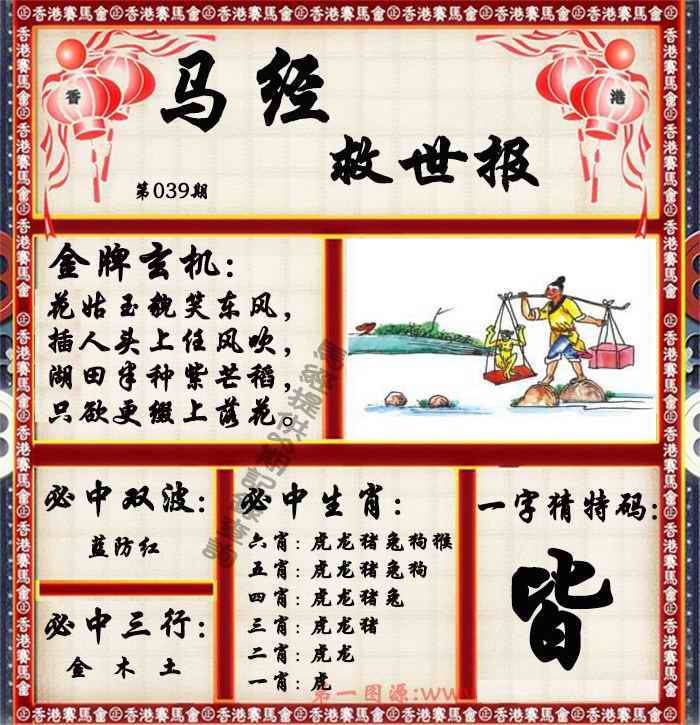 香港賽馬會
香
港
马经
救世报
第039期
金牌玄机：
花姑玉貌笑东风，
插人头上任风吹，
湖田半种紫芒稻，
只欲更缀上落花。
必中双波：
蓝防红
必中三行：
金 木 土
必中生肖：
六肖：虎龙猪兔狗猴
五肖：虎龙猪兔狗
四肖：虎龙猪兔
三肖：虎龙猪
二肖：虎龙
一肖：虎
一字猜特码：
皆
第一图源:www